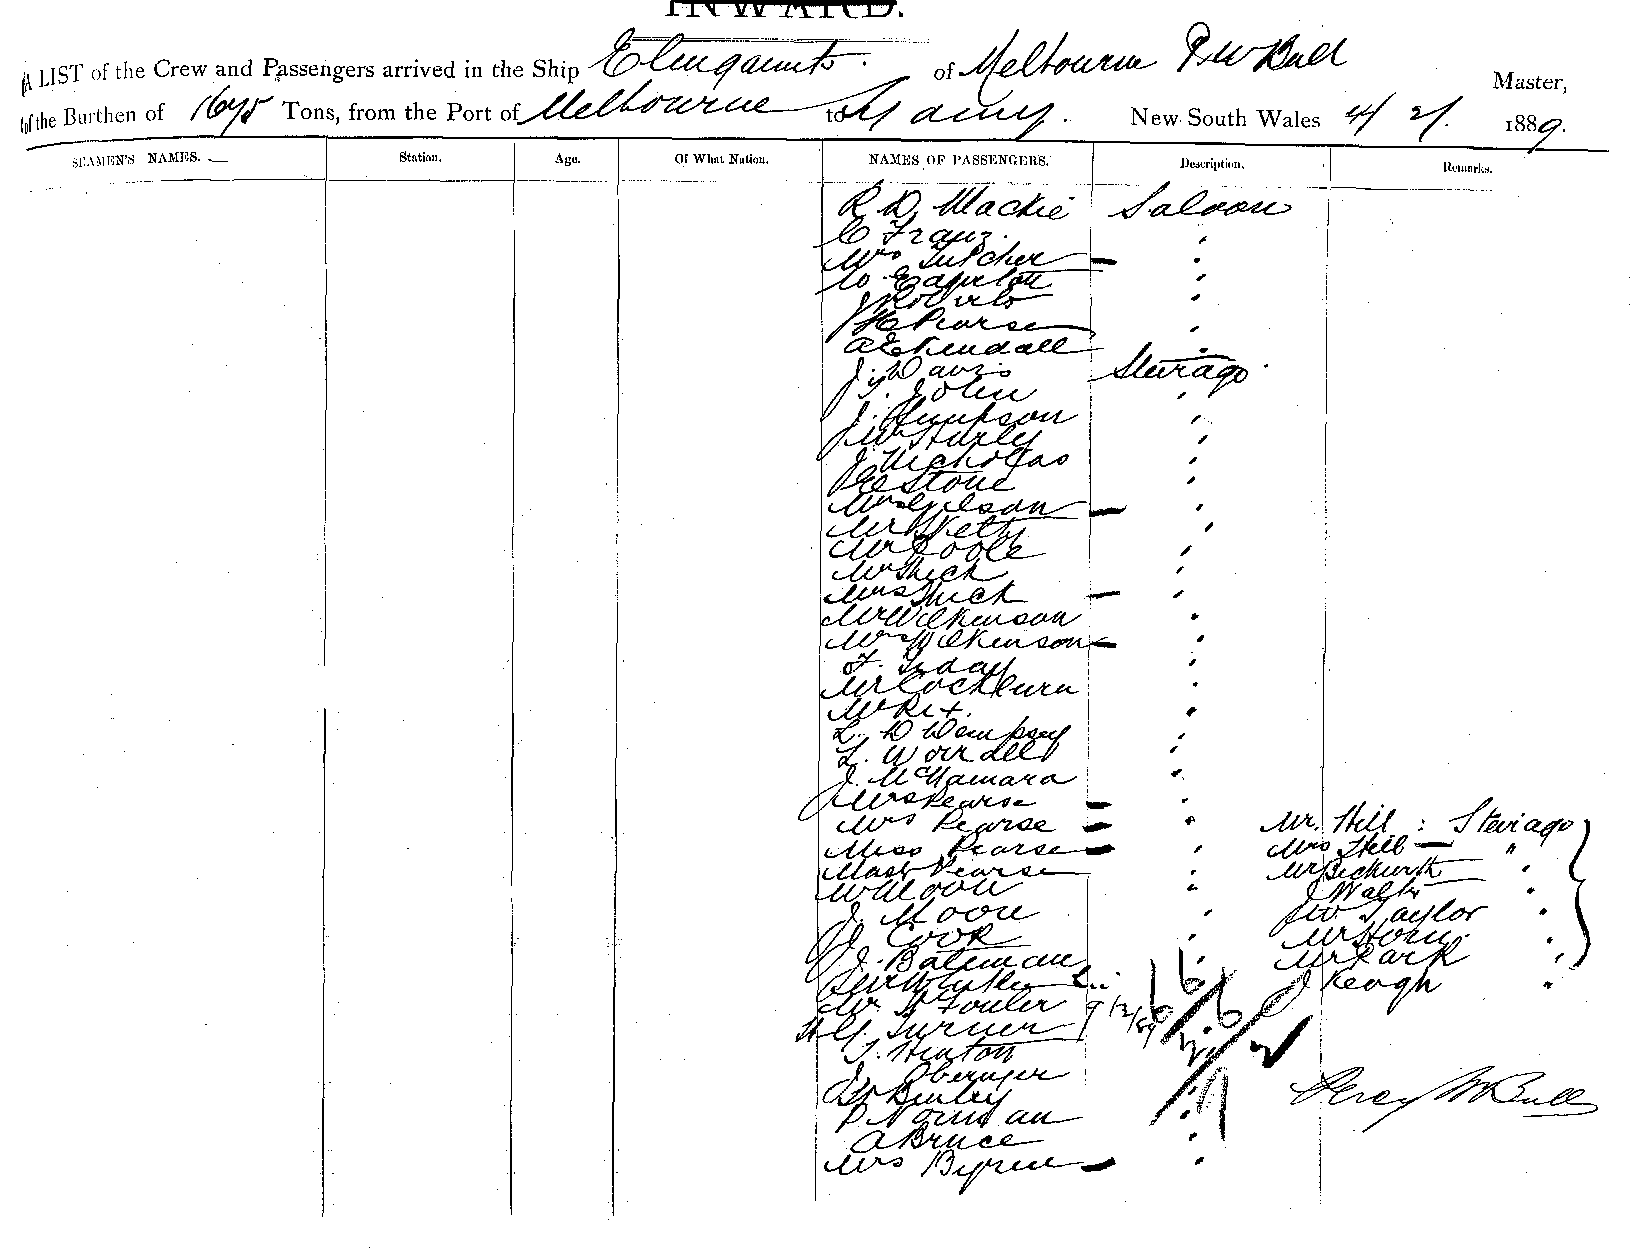 INWARD.
A LIST of the Crew and Passengers arrived in the Ship Elingamite of Melbourne P W Bull Master,
of the Burthen of 1675 Tons, from the Port of Melbourne to Sydney. New South Wales 4/ 2/. 1889.
SEAMEN'S NAMES. Station. Age. Of What Nation. NAMES OF PASSENGERS. Description. Remarks.
R. D. Mackie Saloon
C Franz "
Mrs Butcher — "
"
J Roberts "
H Pearse "
A E Kendall "
J. Davis Steerage
T. John "
J. Simpson "
J W Hurley "
J. Nicholas "
G E Stone "
Mrs Gilson — "
Mr "
Mr Poole "
Mr Thick "
Mrs Thick — "
Mr Wilkinson "
Mrs Wilkinson — "
F. "
Mr Cockburn "
Mr Rix "
L. D Dempsey "
L. Worrall "
J. McNamara "
Mrs Pearse — "
Mrs Pearse — " Mr. Hill : Steerage
Miss Pearse — " Mrs Hill — "
Mast Pearse " Mr Beckwith "
W Moore " J Walts "
J. Moore " J W Taylor "
J Cook " Mr Horn "
J. Bateman " Mr Park "
J Keogh "
W. H Fowler 9/2/89
H G. Turner
T. Hinton
J. Oberuper
Burley Percy W Bull
P Norman
A Bruce "
Mrs Byrne — "